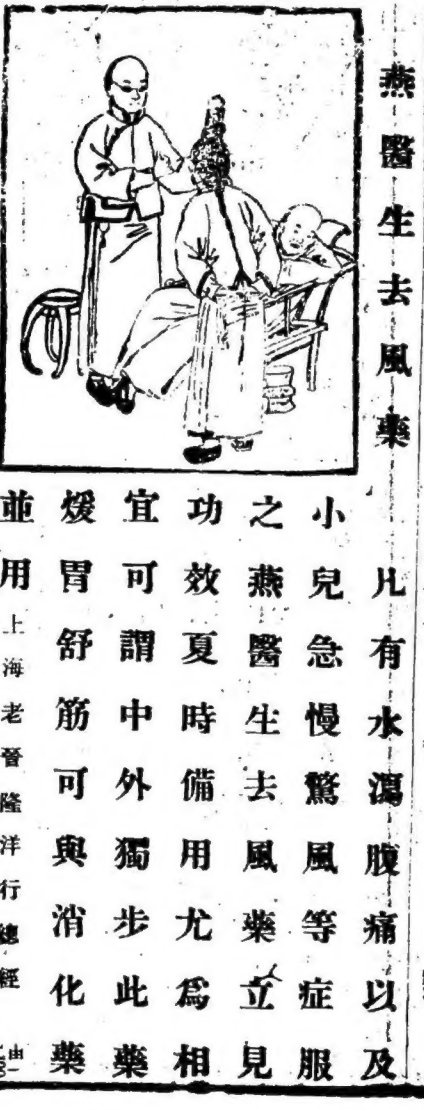 燕醫生去風藥
凡有水瀉腹痛以及
小兒急慢驚風等症服
之燕醫生去風藥立見
功效夏時備用尤爲相
宜可謂中外獨步此藥
煖胃舒筋可與消化藥
並用上海老晉隆洋行總經
由